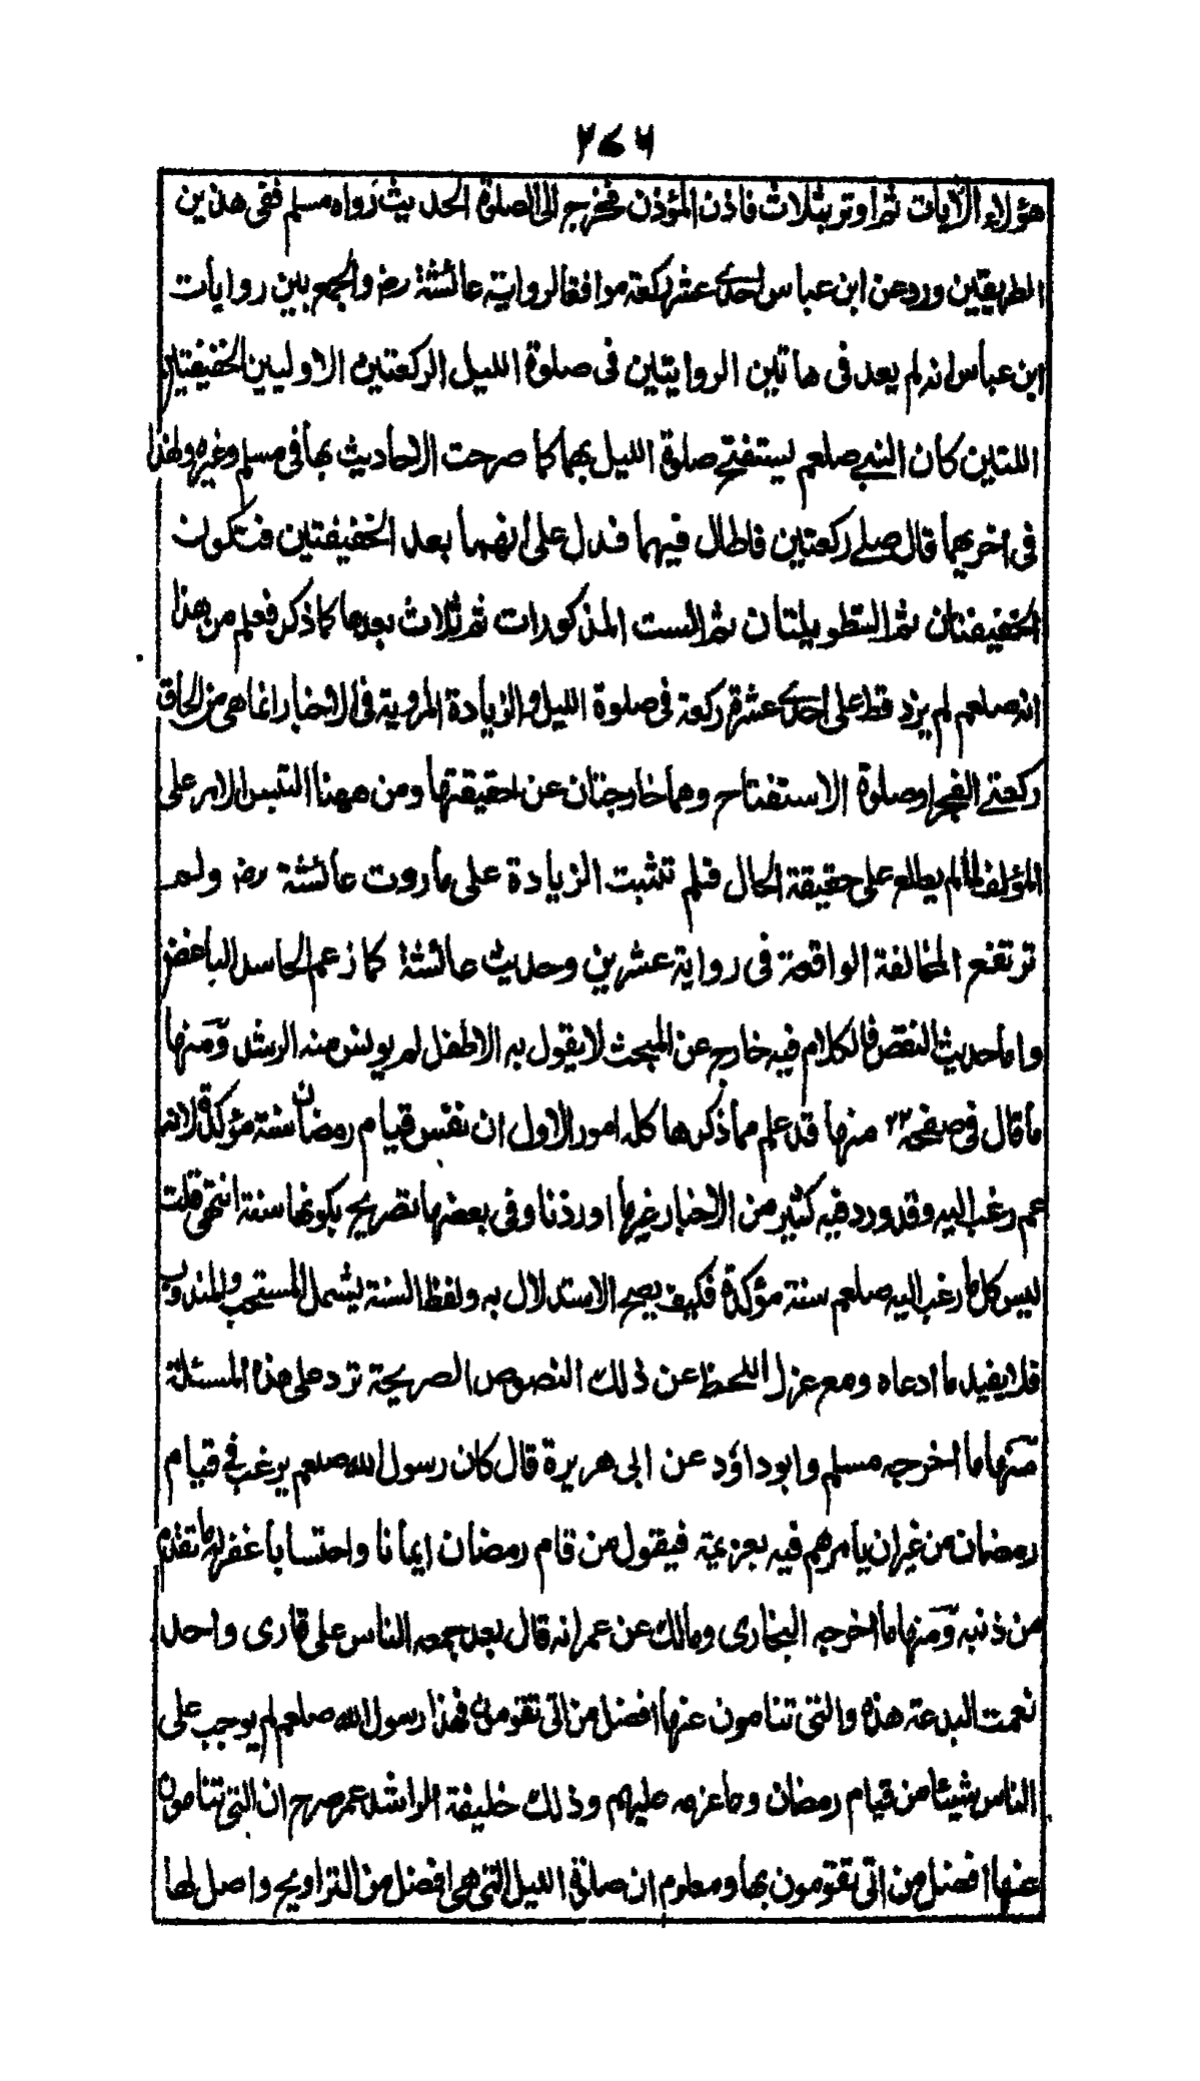 ٢٧٦
هؤلاء الآيات ثم اوتر بثلاث فاذن المؤذن فخرج الى الصلوة الحديث رواه مسلم ففى هذين
الطريقين ورد عن ابن عباس احدى عشر ركعة موافقا لرواية عائشة رض والجمع بين روايات
ابن عباس انه لم يعد فى هاتين الروايتين فى صلوة الليل الركعتين الاوليين الخفيفتين
اللتين كان النبى صلعم يستفتح صلوة الليل بهما كما صرحت الاحاديث بها فى مسلم وغيره ولهذا
فى اخريهما قال صلى ركعتين فاطال فيهما فدل على انهما بعد الخفيفتين فتكون
الخفيفتان ثم الطويلتان ثم الست المذكورات ثم ثلاث بعدها كما ذكر فعلم من هذا
انه صلعم لم يزد قط على احدى عشرة ركعة فى صلوة الليل والزيادة المروية فى الاخبار انما هى من الحاق
ركعتى الفجر او صلوة الاستفتاح وهما خارجتان عن حقيقتها ومن ههنا التبس الامر على
المؤلف لما لم يطلع على حقيقة الحال فلم تثبت الزيادة على ما روت عائشة رض ولم
ترتفع المخالفة الواقعة فى رواية عشرين وحديث عائشة كما زعم الحاسد الباغض
واما حديث النقص فالكلام فيه خارج عن المبحث لا يقول به الا طفل لم يونس منه الرشد ومنها
ما قال فى صفحه ٢٢ منها قد علم مما ذكرها كله امور الاول ان نفس قيام رمضان سنة مؤكدة لانه
عم رغب اليه وقد ورد فيه كثير من الاخبار غيرها اوردنا وفى بعضها تصريح بكونها سنة انتهى قلت
ليس كل ما رغب اليه صلعم سنة مؤكدة فكيف يصح الاستدلال به ولفظ السنة يشمل المستحب والمندوب
فلا يفيد ما ادعاه ومع عزل اللحظ عن ذلك النصوص الصريحة ترد على هذا المسئلة
منها ما اخرجه مسلم وابو داؤد عن ابى هريرة قال كان رسول الله صلعم يرغب فى قيام
رمضان من غير ان يأمرهم فيه بعزيمة فيقول من قام رمضان ايمانا واحتسابا غفر له ما تقدم
من ذنبه ومنها ما اخرجه البخارى ومالك عن عمر انه قال بعد جمعه الناس على قارى واحد
نعمت البدعة هذه والتى تنامون عنها افضل من التى تقومون فهذا رسول الله صلعم لم يوجب على
الناس شيئا من قيام رمضان وما عزمه عليهم وذلك خليفة الراشد عمر صرح ان التى تنامون
عنها افضل من التى تقومون بها ومعلوم ان صلوة الليل التى هى افضل من التراويح واصل لها